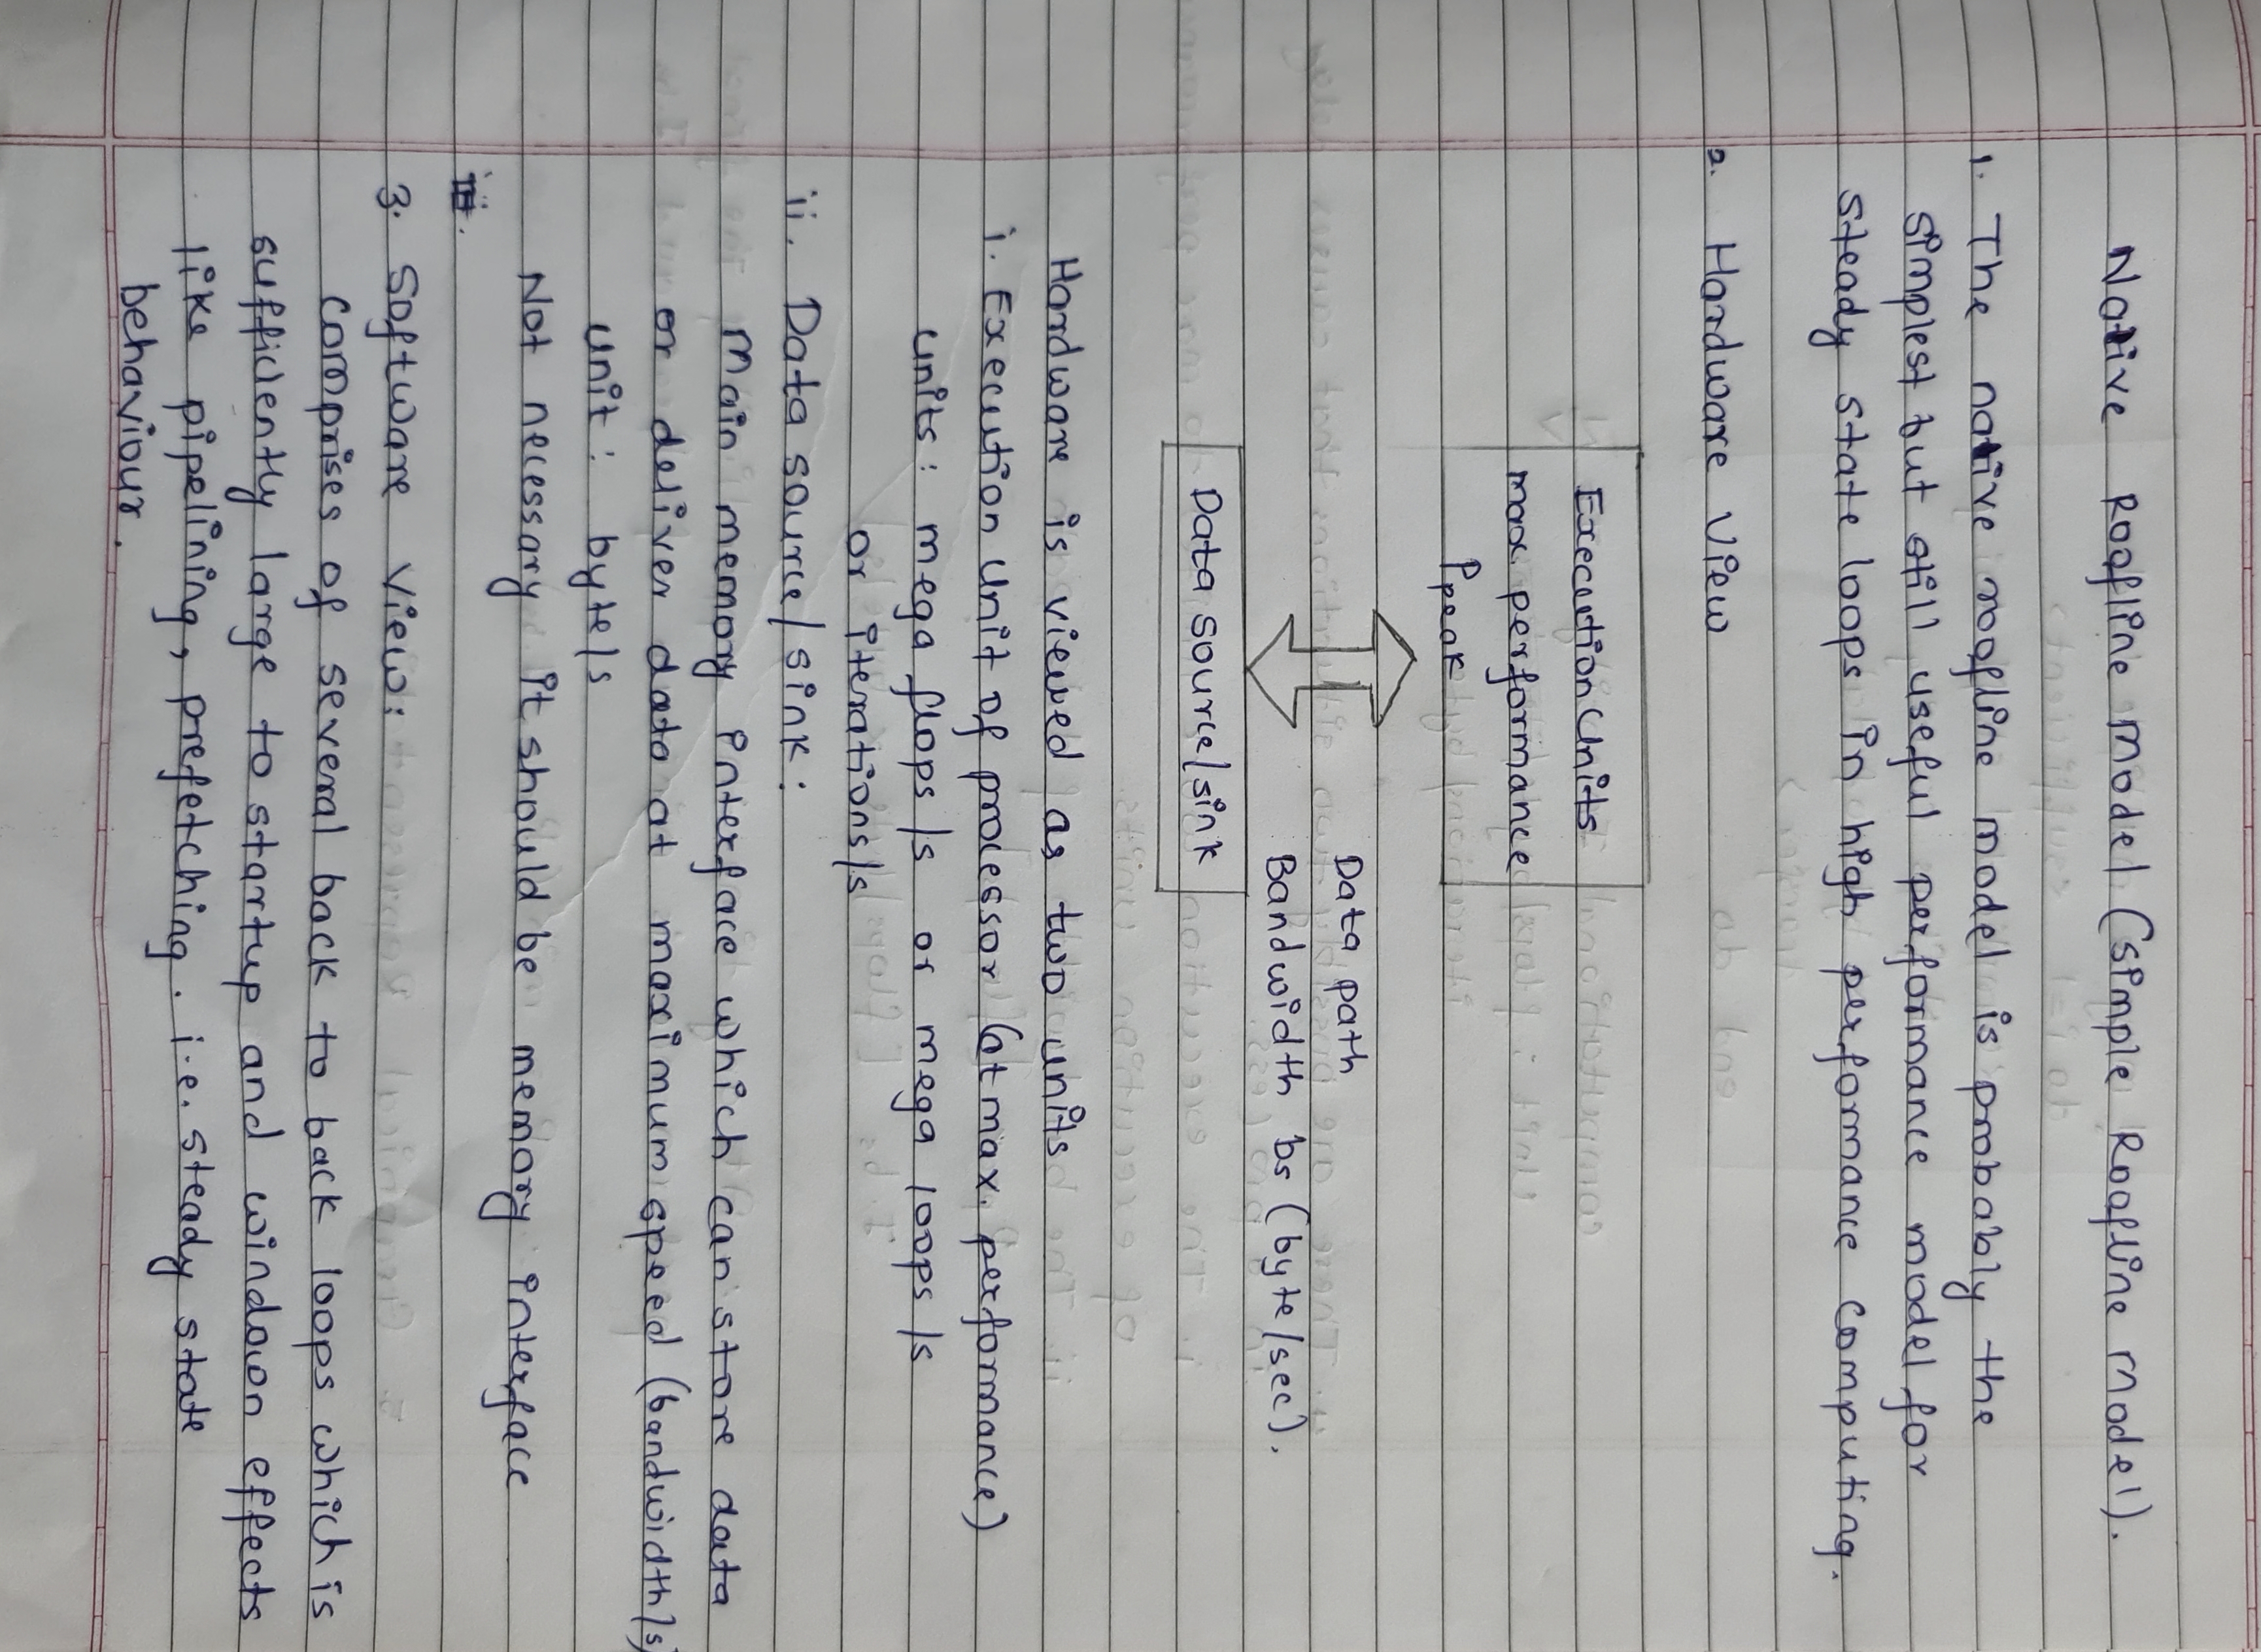 Native Roofline Model (Simple Roofline Model).
1. The native roofline model is probably the
simplest but still useful performance model for
steady state loops in high performance computing.
2. Hardware View
Execution Units
max performance
Ppeak
Data path
Bandwidth bs (byte/sec).
Data source/sink
Hardware is viewed as two units
i. Execution unit of processor (at max. performance)
units: mega flops/s or mega loops/s
or iterations/s
ii. Data source/sink:
Main memory interface which can store data
or deliver data at maximum speed (bandwidth/s)
unit: byte/s
Not necessary it should be memory interface
3. Software View:
Comprises of several back to back loops which is
sufficiently large to startup and windown effects
like pipelining, prefetching. i.e. steady state
behaviour.